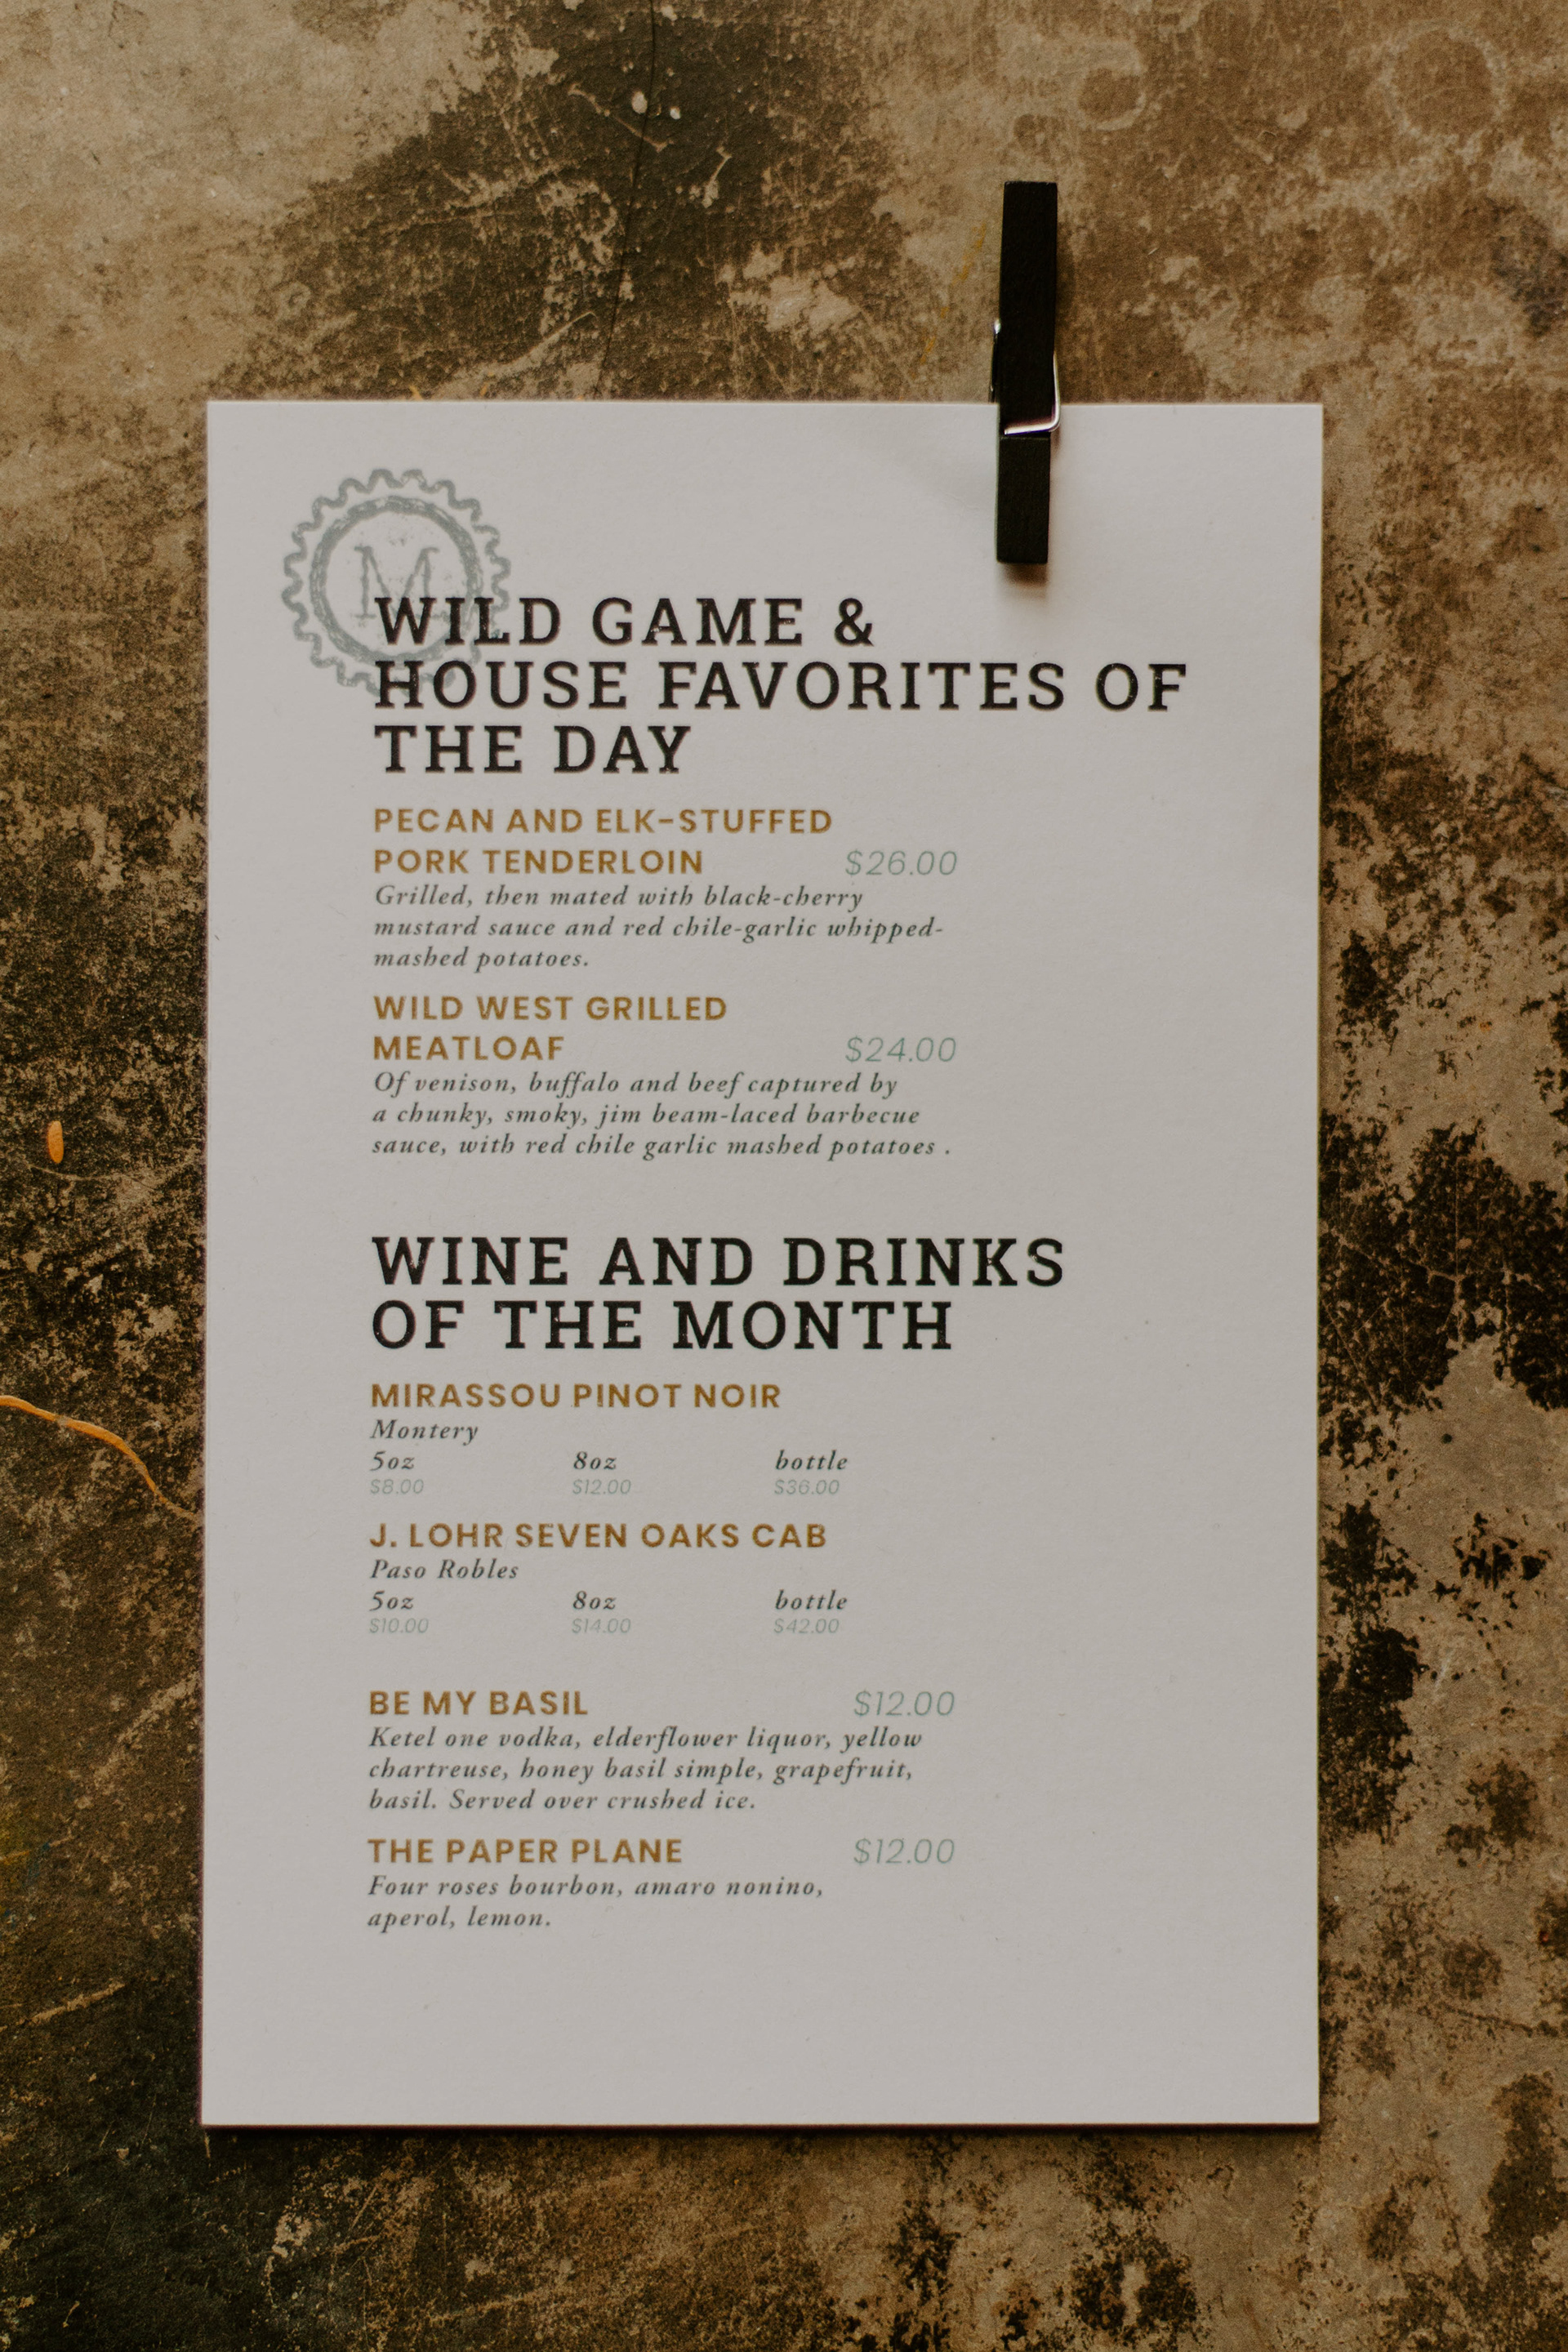 M
WILD GAME &
HOUSE FAVORITES OF
THE DAY
PECAN AND ELK-STUFFED
PORK TENDERLOIN $26.00
Grilled, then mated with black-cherry
mustard sauce and red chile-garlic whipped-
mashed potatoes.
WILD WEST GRILLED
MEATLOAF $24.00
Of venison, buffalo and beef captured by
a chunky, smoky, jim beam-laced barbecue
sauce, with red chile garlic mashed potatoes .
WINE AND DRINKS
OF THE MONTH
MIRASSOU PINOT NOIR
Montery
5oz 8oz bottle
$8.00 $12.00 $36.00
J. LOHR SEVEN OAKS CAB
Paso Robles
5oz 8oz bottle
$10.00 $14.00 $42.00
BE MY BASIL $12.00
Ketel one vodka, elderflower liquor, yellow
chartreuse, honey basil simple, grapefruit,
basil. Served over crushed ice.
THE PAPER PLANE $12.00
Four roses bourbon, amaro nonino,
aperol, lemon.